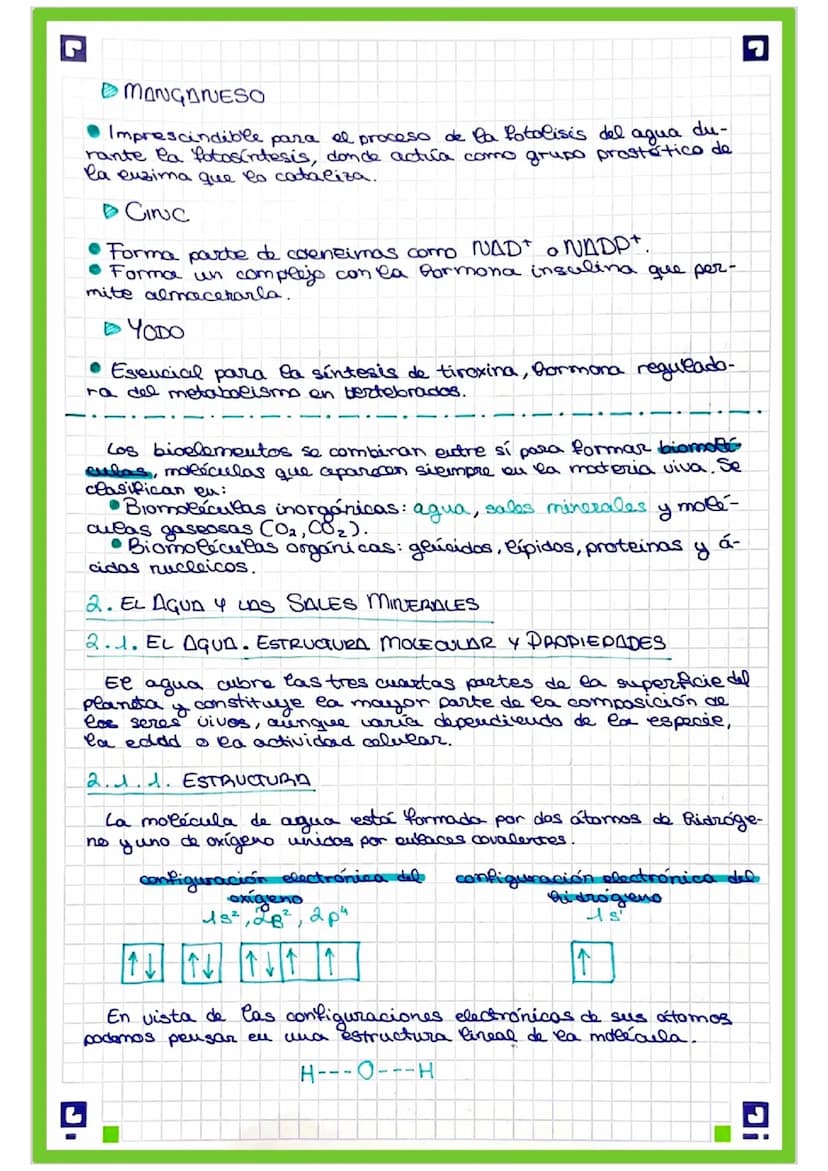 MANGANESO
Imprescindible para el proceso de la fotolisis del agua du-
rante la fotosíntesis, donde actúa como grupo prostético de
la enzima que lo cataliza.
CINC
Forma parte de coeneimas como NAD+ o NADP+.
Forma un complejo con la hormona insulina que per-
mite almacenarla.
YODO
Esencial para la síntesis de tiroxina, hormona regulado-
ra del metabolismo en vertebrados.
Los bioelementos se combinan entre sí para formar biomolé
culas, moléculas que aparecen siempre en la materia viva. Se
clasifican en:
Biomoléculas inorgánicas: agua, sales minerales y molé-
culas gaseosas (O₂, CO₂).
Biomoléculas orgánicas: glúcidos, lípidos, proteinas y á-
cidos nucleicos.
2. EL AGUA Y LAS SALES MINERALES
2.1. EL AGUA. ESTRUCTURA MOLECULAR Y PROPIEDADES
El agua cubre las tres cuartas partes de la superficie del
planeta y constituye la mayor parte de la composición de
los seres vivos, aunque varía dependiendo de la especie,
la edad o la actividad celular.
2.1.1. ESTRUCTURA
La molécula de agua está formada por dos átomos de hidróge-
no y uno de oxígeno unidos por enlaces covalentes.
configuración electrónica del configuración electrónica del
oxígeno hidrógeno
1s², 2s², 2p⁴ 1s¹
↑↓ ↑↓ ↑↓ ↑ ↑ ↑
En vista de las configuraciones electrónicas de sus átomos
podemos pensar en una estructura lineal de la molécula.
H---O---H